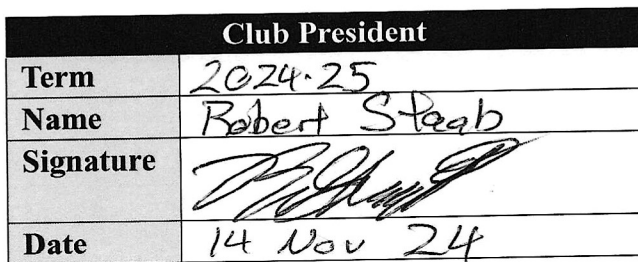 Club President
Term 2024-25
Name Robert Staab
Signature
Date 14 Nov 24